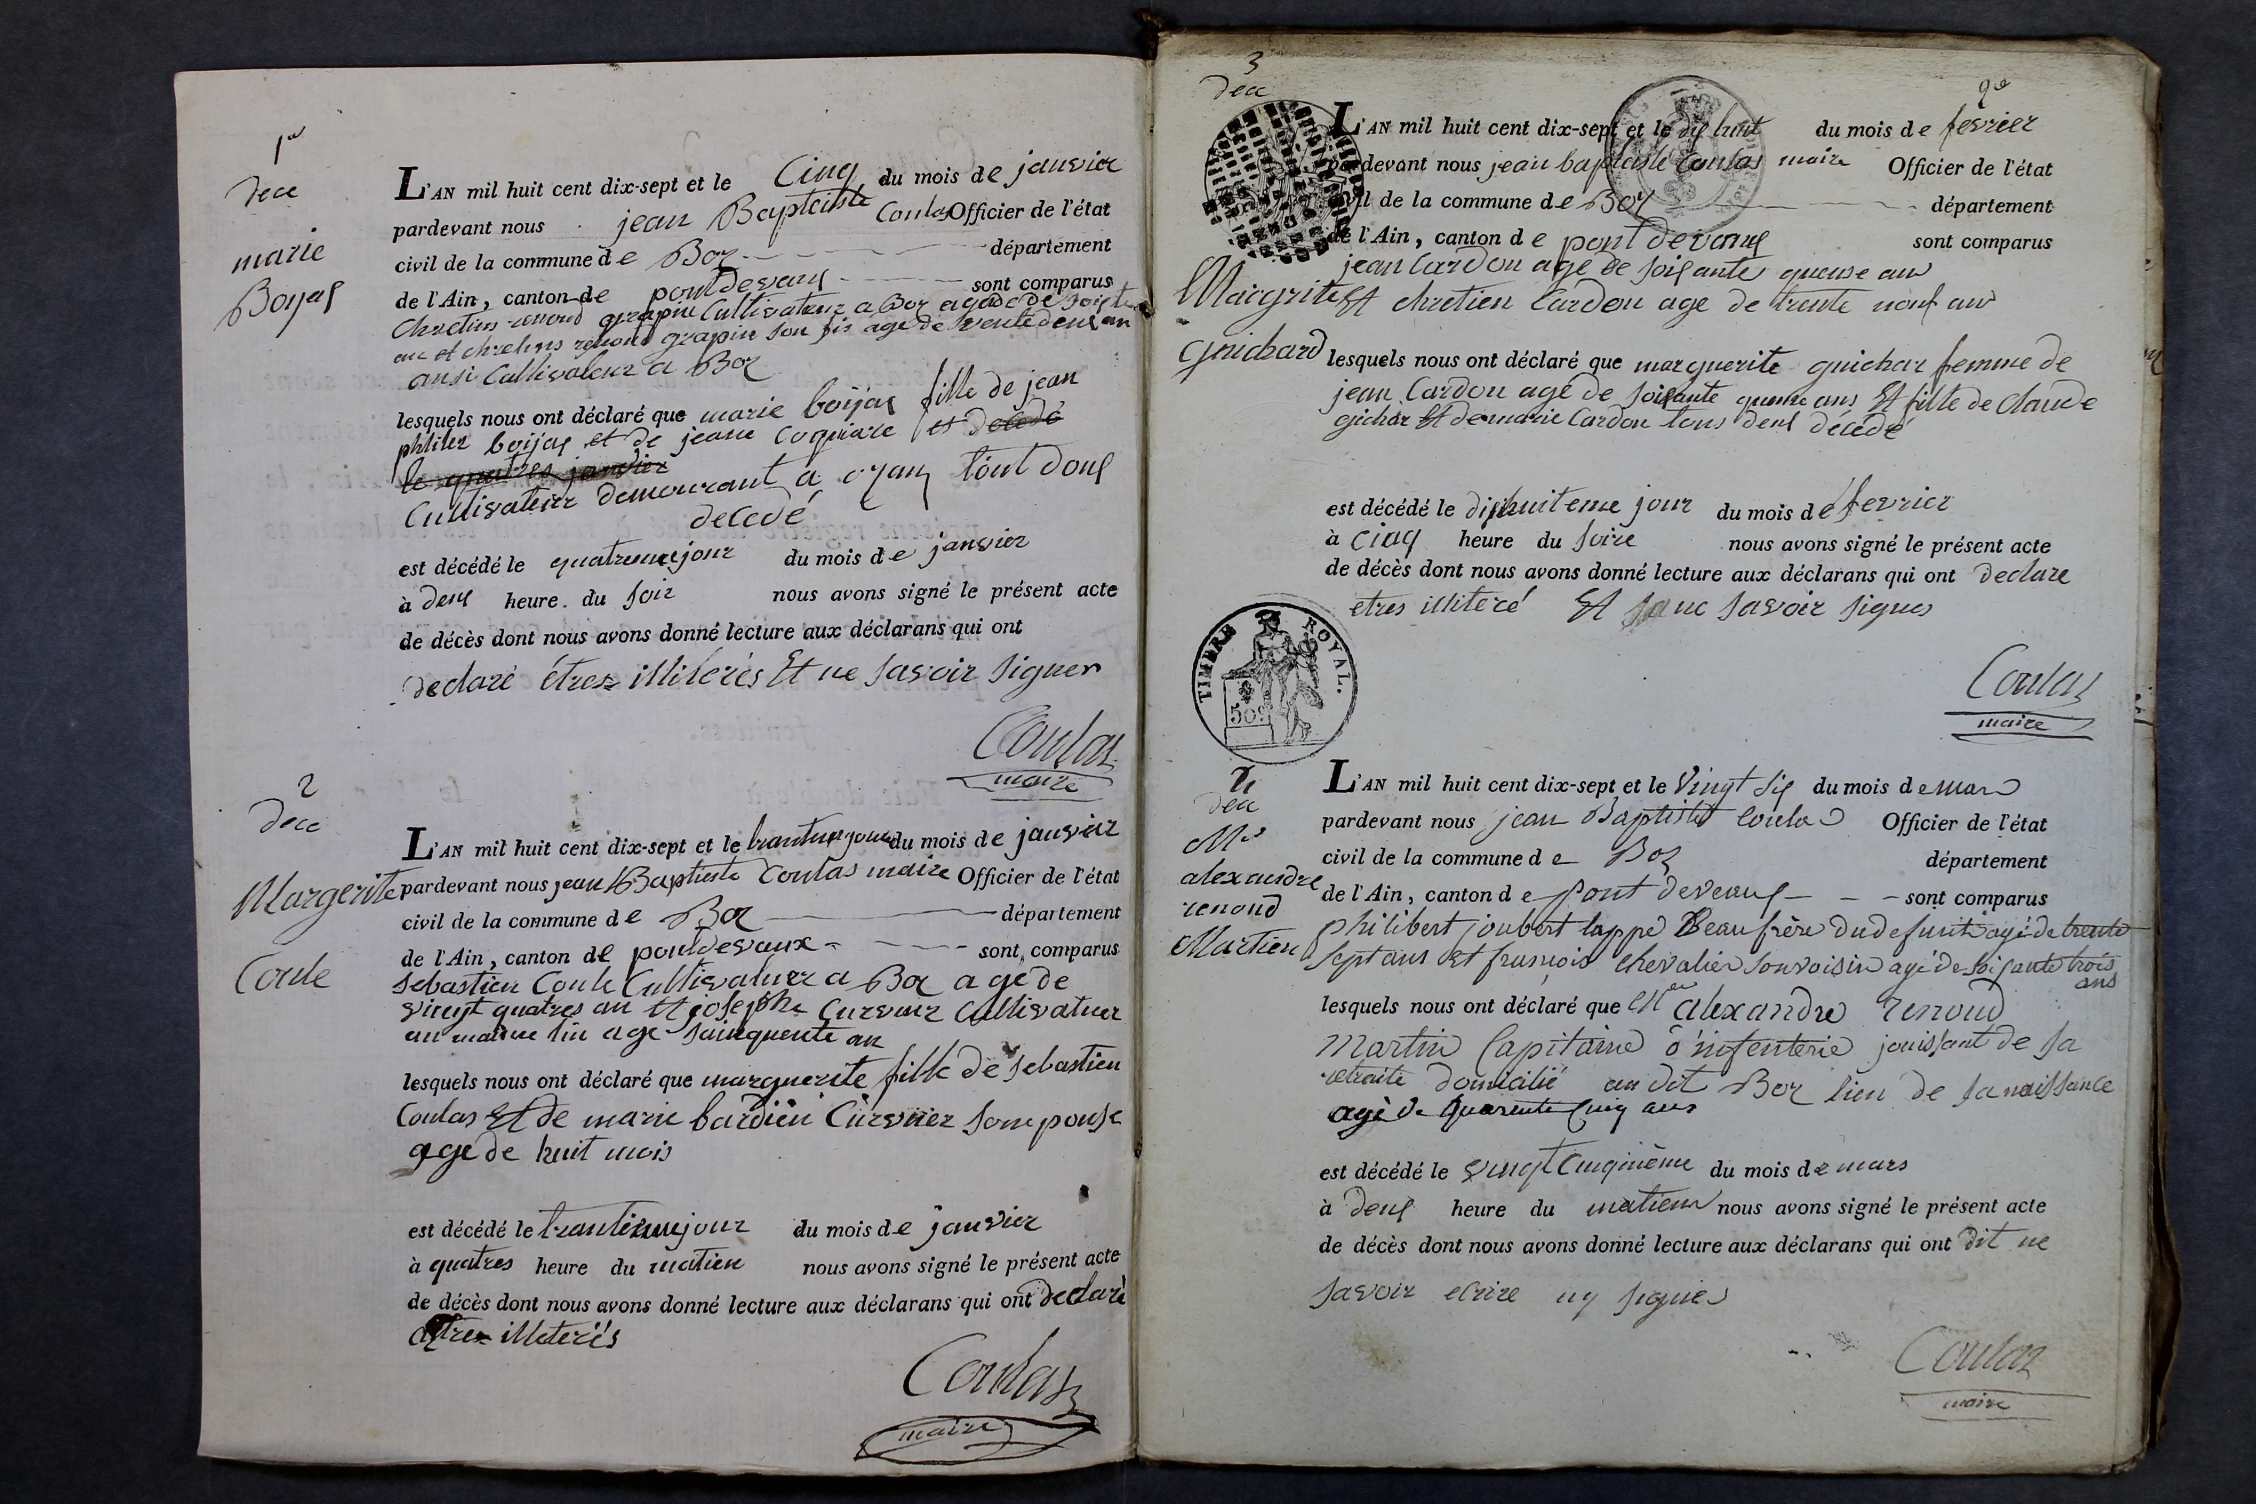 1er
dece
marie
Boyas
L'AN mil huit cent dix-sept et le Cinq du mois de janvier
pardevant nous jean Baptiste Coulas Officier de l'état
civil de la commune de Boz département
de l'Ain, canton de pontdevaux sont comparus
Chretins renoud grapin Cultivateur a Boz agé de de
an et chretins renoud grapin son fis age de trente deux an
ansi Cultivateur a Boz
lesquels nous ont déclaré que marie boijas fille de jean
philiber boijas et de jeane et decedé
le quatres janvier
Cultivateur demeurant a ozan tout doux
decedé
est décédé le quatreme jour du mois de janvier
à deux heure du soir nous avons signé le présent acte
de décès dont nous avons donné lecture aux déclarans qui ont
declaré étres illiterés Et ne savoir signer
Coulas
maire
2
dece
Margerite
Coule
L'AN mil huit cent dix-sept et le du mois de janvier
pardevant nous jean Baptiste Coulas maire Officier de l'état
civil de la commune de Boz département
de l'Ain, canton de pontdevaux sont comparus
sebastien Coule Cultivatuer a Boz age de
vingt quatres an Et josephe Curveur Cultivatuer
au maime lui age sainquente an
lesquels nous ont déclaré que marguerite fille de sebastien
Coulas Et de marie bardien Cureuer som pouse
age de huit mois
est décédé le trantieme jour du mois de janvier
à quatres heure du matien nous avons signé le présent acte
de décès dont nous avons donné lecture aux déclarans qui ont declaré
etres illeterés
Coulas
maire
3
dece
2e
Margrite
Guichard
L'AN mil huit cent dix-sept et le dix huit du mois de fevrier
pardevant nous jean baptiste Coulas maire Officier de l'état
civil de la commune de Boz département
de l'Ain, canton de pont devaux sont comparus
jean Cardon age de soisante quense an
Et chretien Cardon age de trente neuf an
lesquels nous ont déclaré que marguerite guichar femme de
jean Cardon age de soisante quense ans Et fille de Claude
gichar Et de marie Cardon tous deux décédé
est décédé le dixhuiteme jour du mois de fevrier
à cinq heure du soire nous avons signé le présent acte
de décès dont nous avons donné lecture aux déclarans qui ont declare
etres illiteré Et savoir signer
Coulas
maire
TIMBRE ROYAL.
50c
dece
Mr
alexandre
renoud
Martien
L'AN mil huit cent dix-sept et le vingt six du mois de mars
pardevant nous jean Baptiste Coulas Officier de l'état
civil de la commune de Boz département
de l'Ain, canton de pont deveaux sont comparus
philibert joubert lappe Beaufrère du defunt agé de trente
sept ans et francois chevalier son voisin agé de soisante trois
ans
lesquels nous ont déclaré que Mr alexandre renoud
martin Capitaine d'infenterie jouissant de sa
retraite domicilié au dit Boz lieu de sa naissance
agé de quarente cinq ans
est décédé le vingt cinqieme du mois de mars
à deux heure du matiens nous avons signé le présent acte
de décès dont nous avons donné lecture aux déclarans qui ont dit ne
savoir ecrire ny signer
Coulas
maire